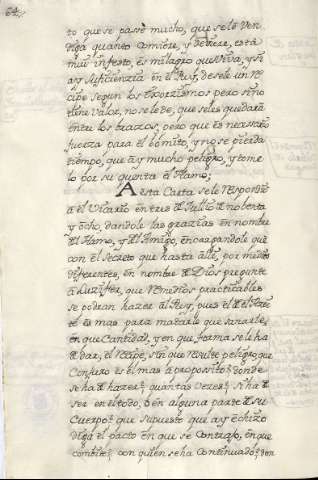 64
to que se passe mucho, que se le ven
diga quanto comiere, y beviere, está
mui infesto, es milagro que viva, y si
ay suficienzia en el Rey, desele un re
cipe segun los exorzismos pero si no
tiene valor, no se le de, que se les quedará
entre los brazos; pero que es nezesario
fuerza para el bomito, y no se pierda
tiempo, que ay mucho peligro, y tome
lo por su quenta el Llamo;
A esta Carta se le respondió
a el Vicario en tres de Jullio de nobenta
y ocho, dandole las grazias en nombre
del Llamo, y del Amigo, encargandole que
con el secreto que hasta alli, por medios
diferentes, en nombre de Dios pregunte
a Luzifer, que remedios practicables
se podran hazer al Rey, pues el del azeite
es mas para matarle que sanarle,
en que cantidad, y en que forma se le ha
de dar, el rezipe, sin que resulte peligro, que
Conjuro es el mas a proposito? donde
se ha de hazer? quantas vezes? si ha de
ser en el todo, o en alguna parte de su
Cuerpo? que supuesto que ay echizo
diga el pacto en que se contrajo, en que
combite? con quien se ha continuado? don